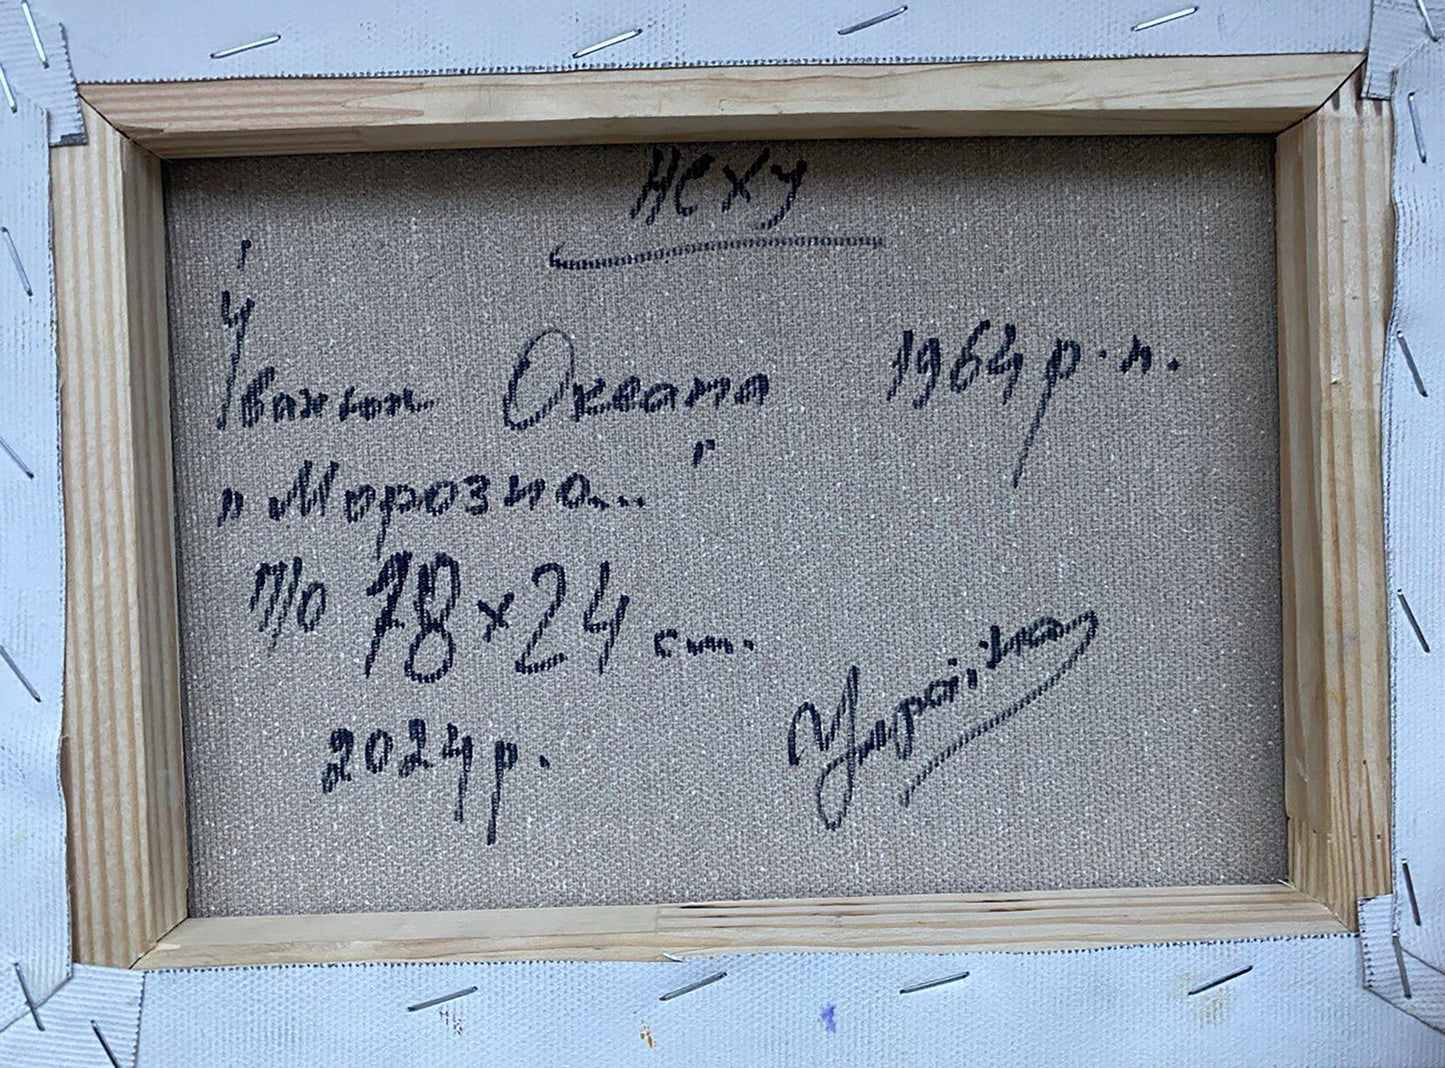 НСХУ
Іванюк Оксана 1964 р.н.
"Морозно..."
п/о 18x24 см.
2024р.
Україна